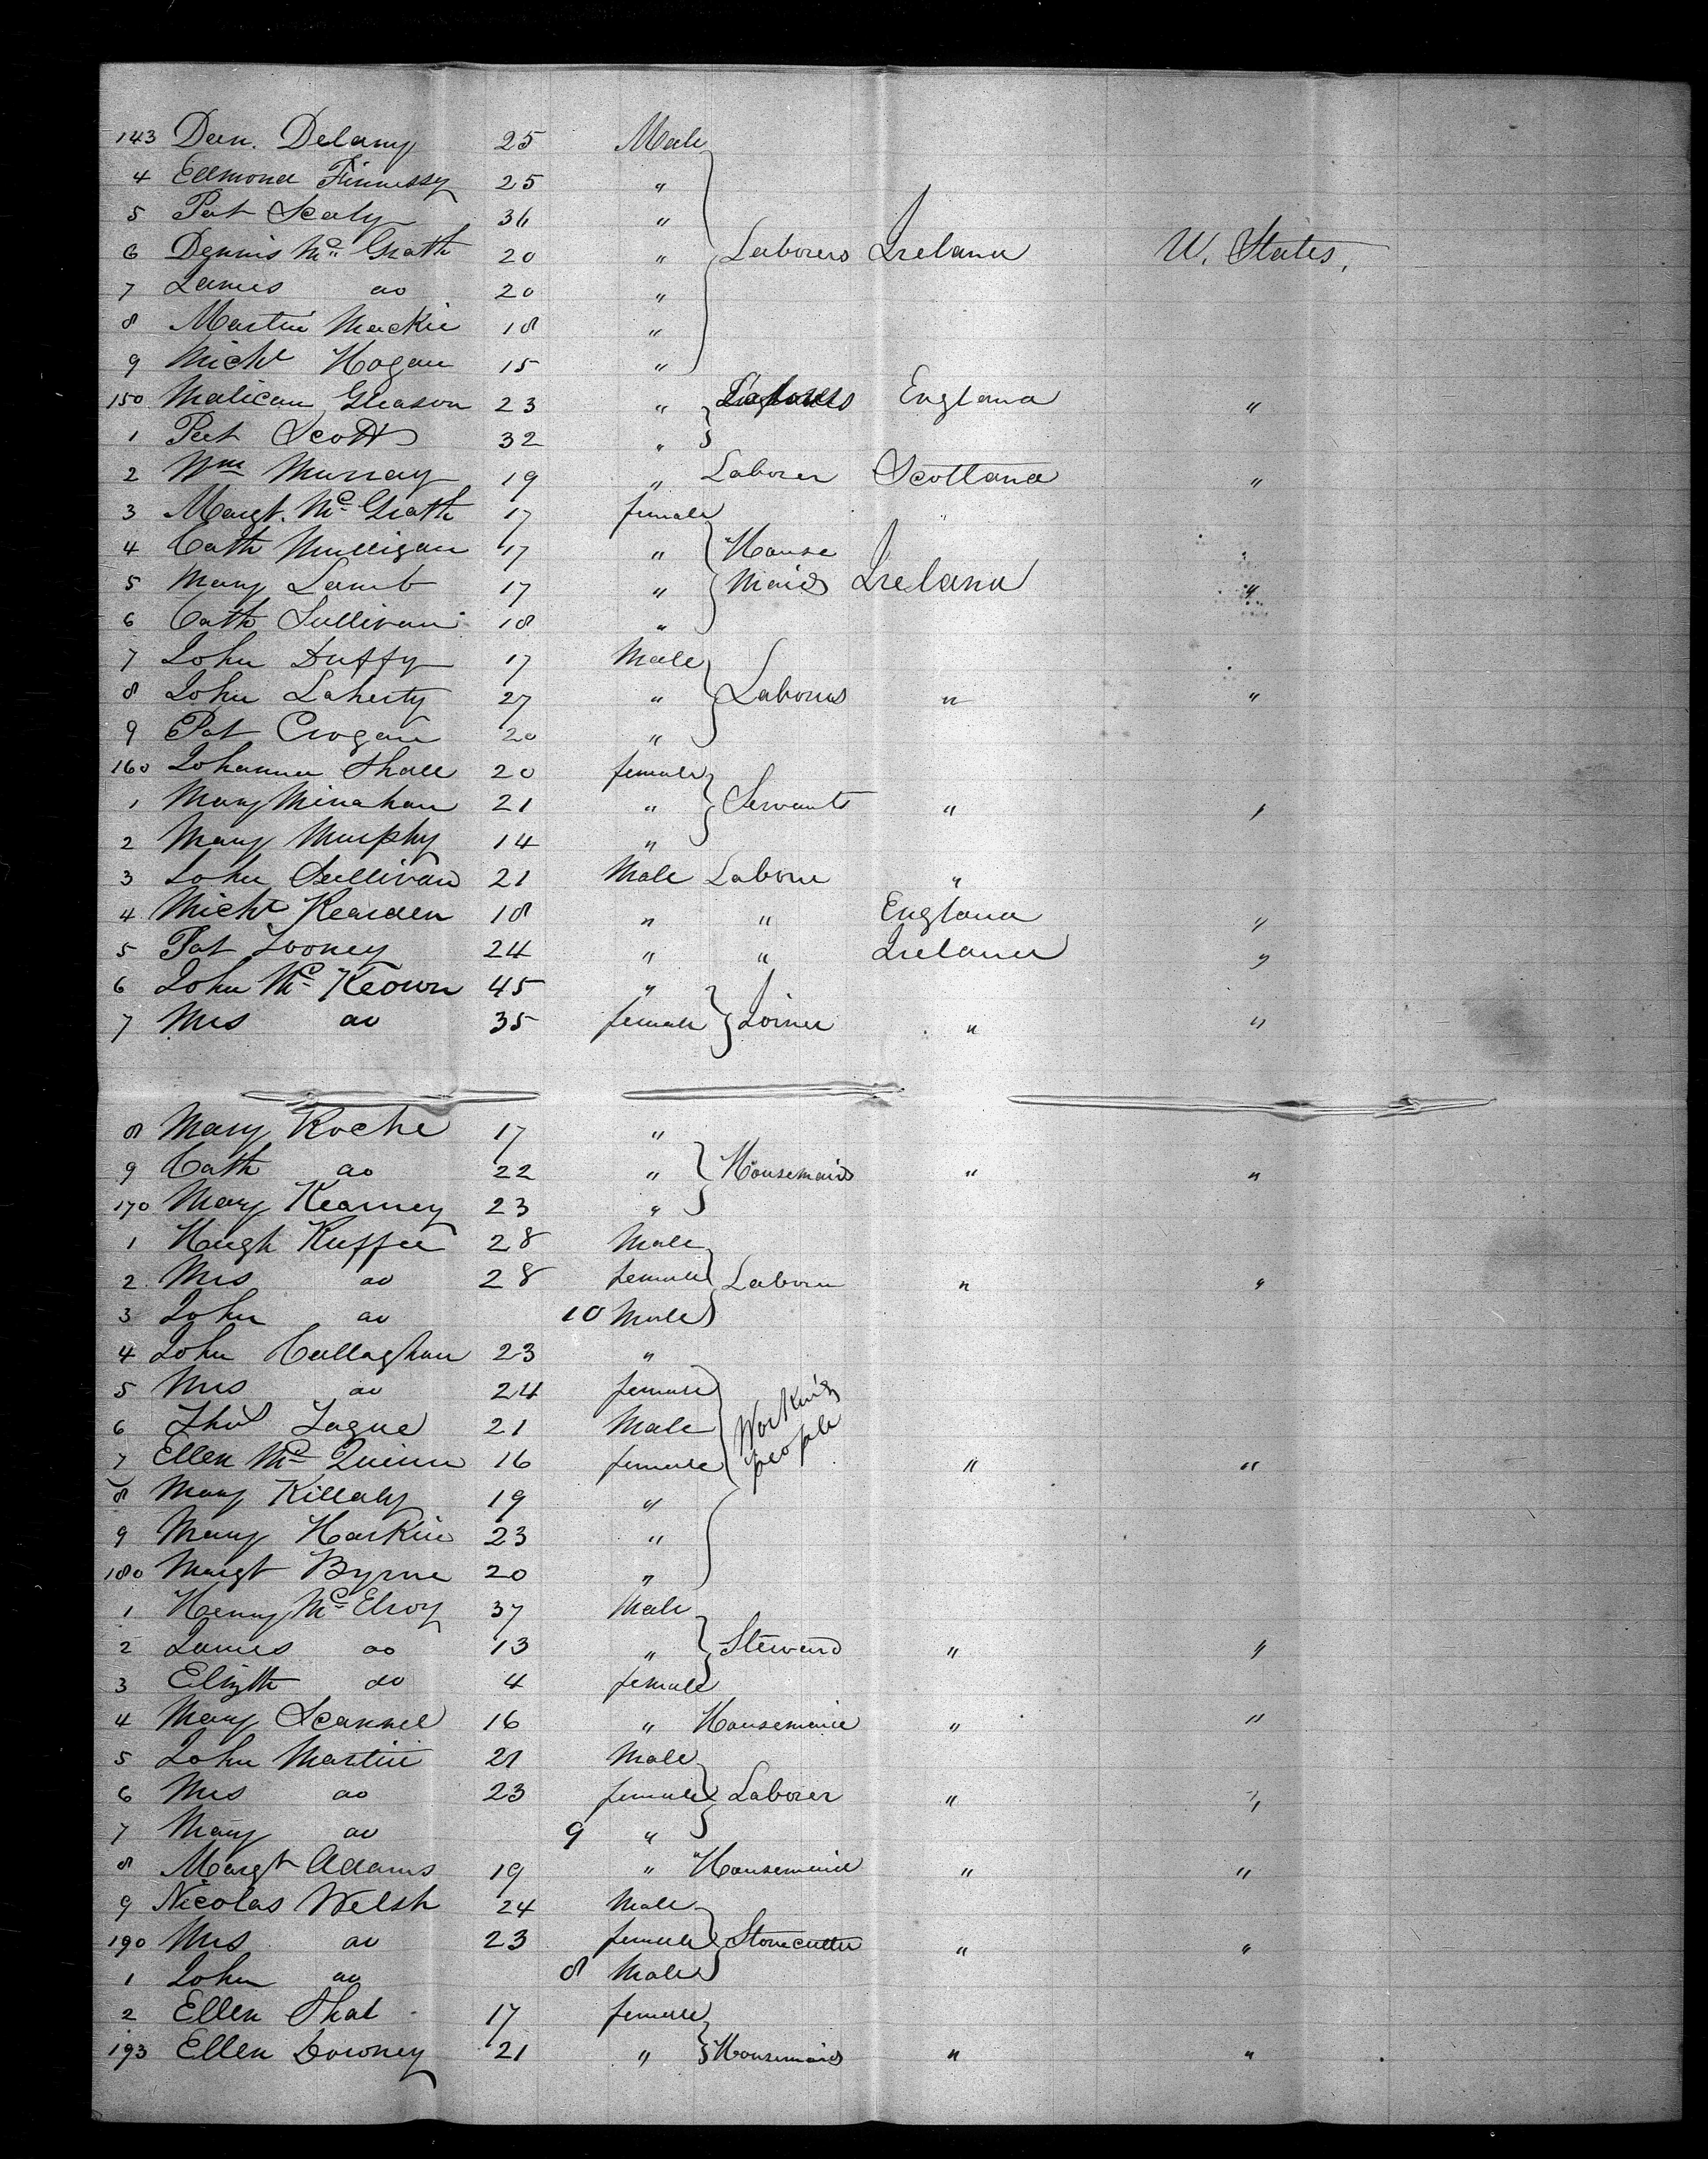 143 Dan. Delany 25 Male
4 Edmond Finnessy 25 "
5 Pat Scaly 36 "
6 Dennis Mc Grath 20 " Laborers Ireland U. States.
7 James do 20 "
8 Martin Mackie 18 "
9 Michl Hogan 15 "
150 Malican Gleason 23 " England "
1 Pat Scott 32 "
2 Wm Murray 19 " Laborer Scotland "
3 Margt. Mc Grath 17 female
4 Cath Mulligan 17 " House "
5 Mary Lamb 17 " Maids Ireland "
6 Cath Sullivan 18 "
7 John Duffy 17 Male
8 John Laherty 27 " Laborers " "
9 Pat Crogan 20 "
160 Johanna Shall 20 female
1 Mary Minahan 21 " Servants " "
2 Mary Murphy 14 "
3 John Sullivan 21 Male Laborer "
4 Michl Rearden 18 " " England "
5 Pat Tooney 24 " " Ireland "
6 John Mc Keown 45 "
7 Mrs do 35 female Joiner " "
8 Mary Roche 17 "
9 Cath do 22 " Housemaids " "
170 Mary Kearney 23 "
1 Hugh Kuffee 28 Male
2 Mrs do 28 female Laborer " "
3 John do 10 Male
4 John Callaghan 23 "
5 Mrs do 24 female
6 Thos Tague 21 Male Working
7 Ellen Mc Quinn 16 female people " "
8 Mary Killaly 19 "
9 Mary Harkin 23 "
180 Margt Byrne 20 "
1 Henry Mc Elroy 37 Male
2 James do 13 " Steward " "
3 Elizth do 4 female
4 Mary Scannel 16 " Housemaid " "
5 John Martin 21 Male
6 Mrs do 23 female Laborer " "
7 Mary do 9 "
8 Margt Adams 19 " Housemaid " "
9 Nicolas Welsh 24 Male
190 Mrs do 23 female Stonecutter " "
1 John do 8 Male
2 Ellen Shal 17 female
193 Ellen Downey 21 " Housemaids " "